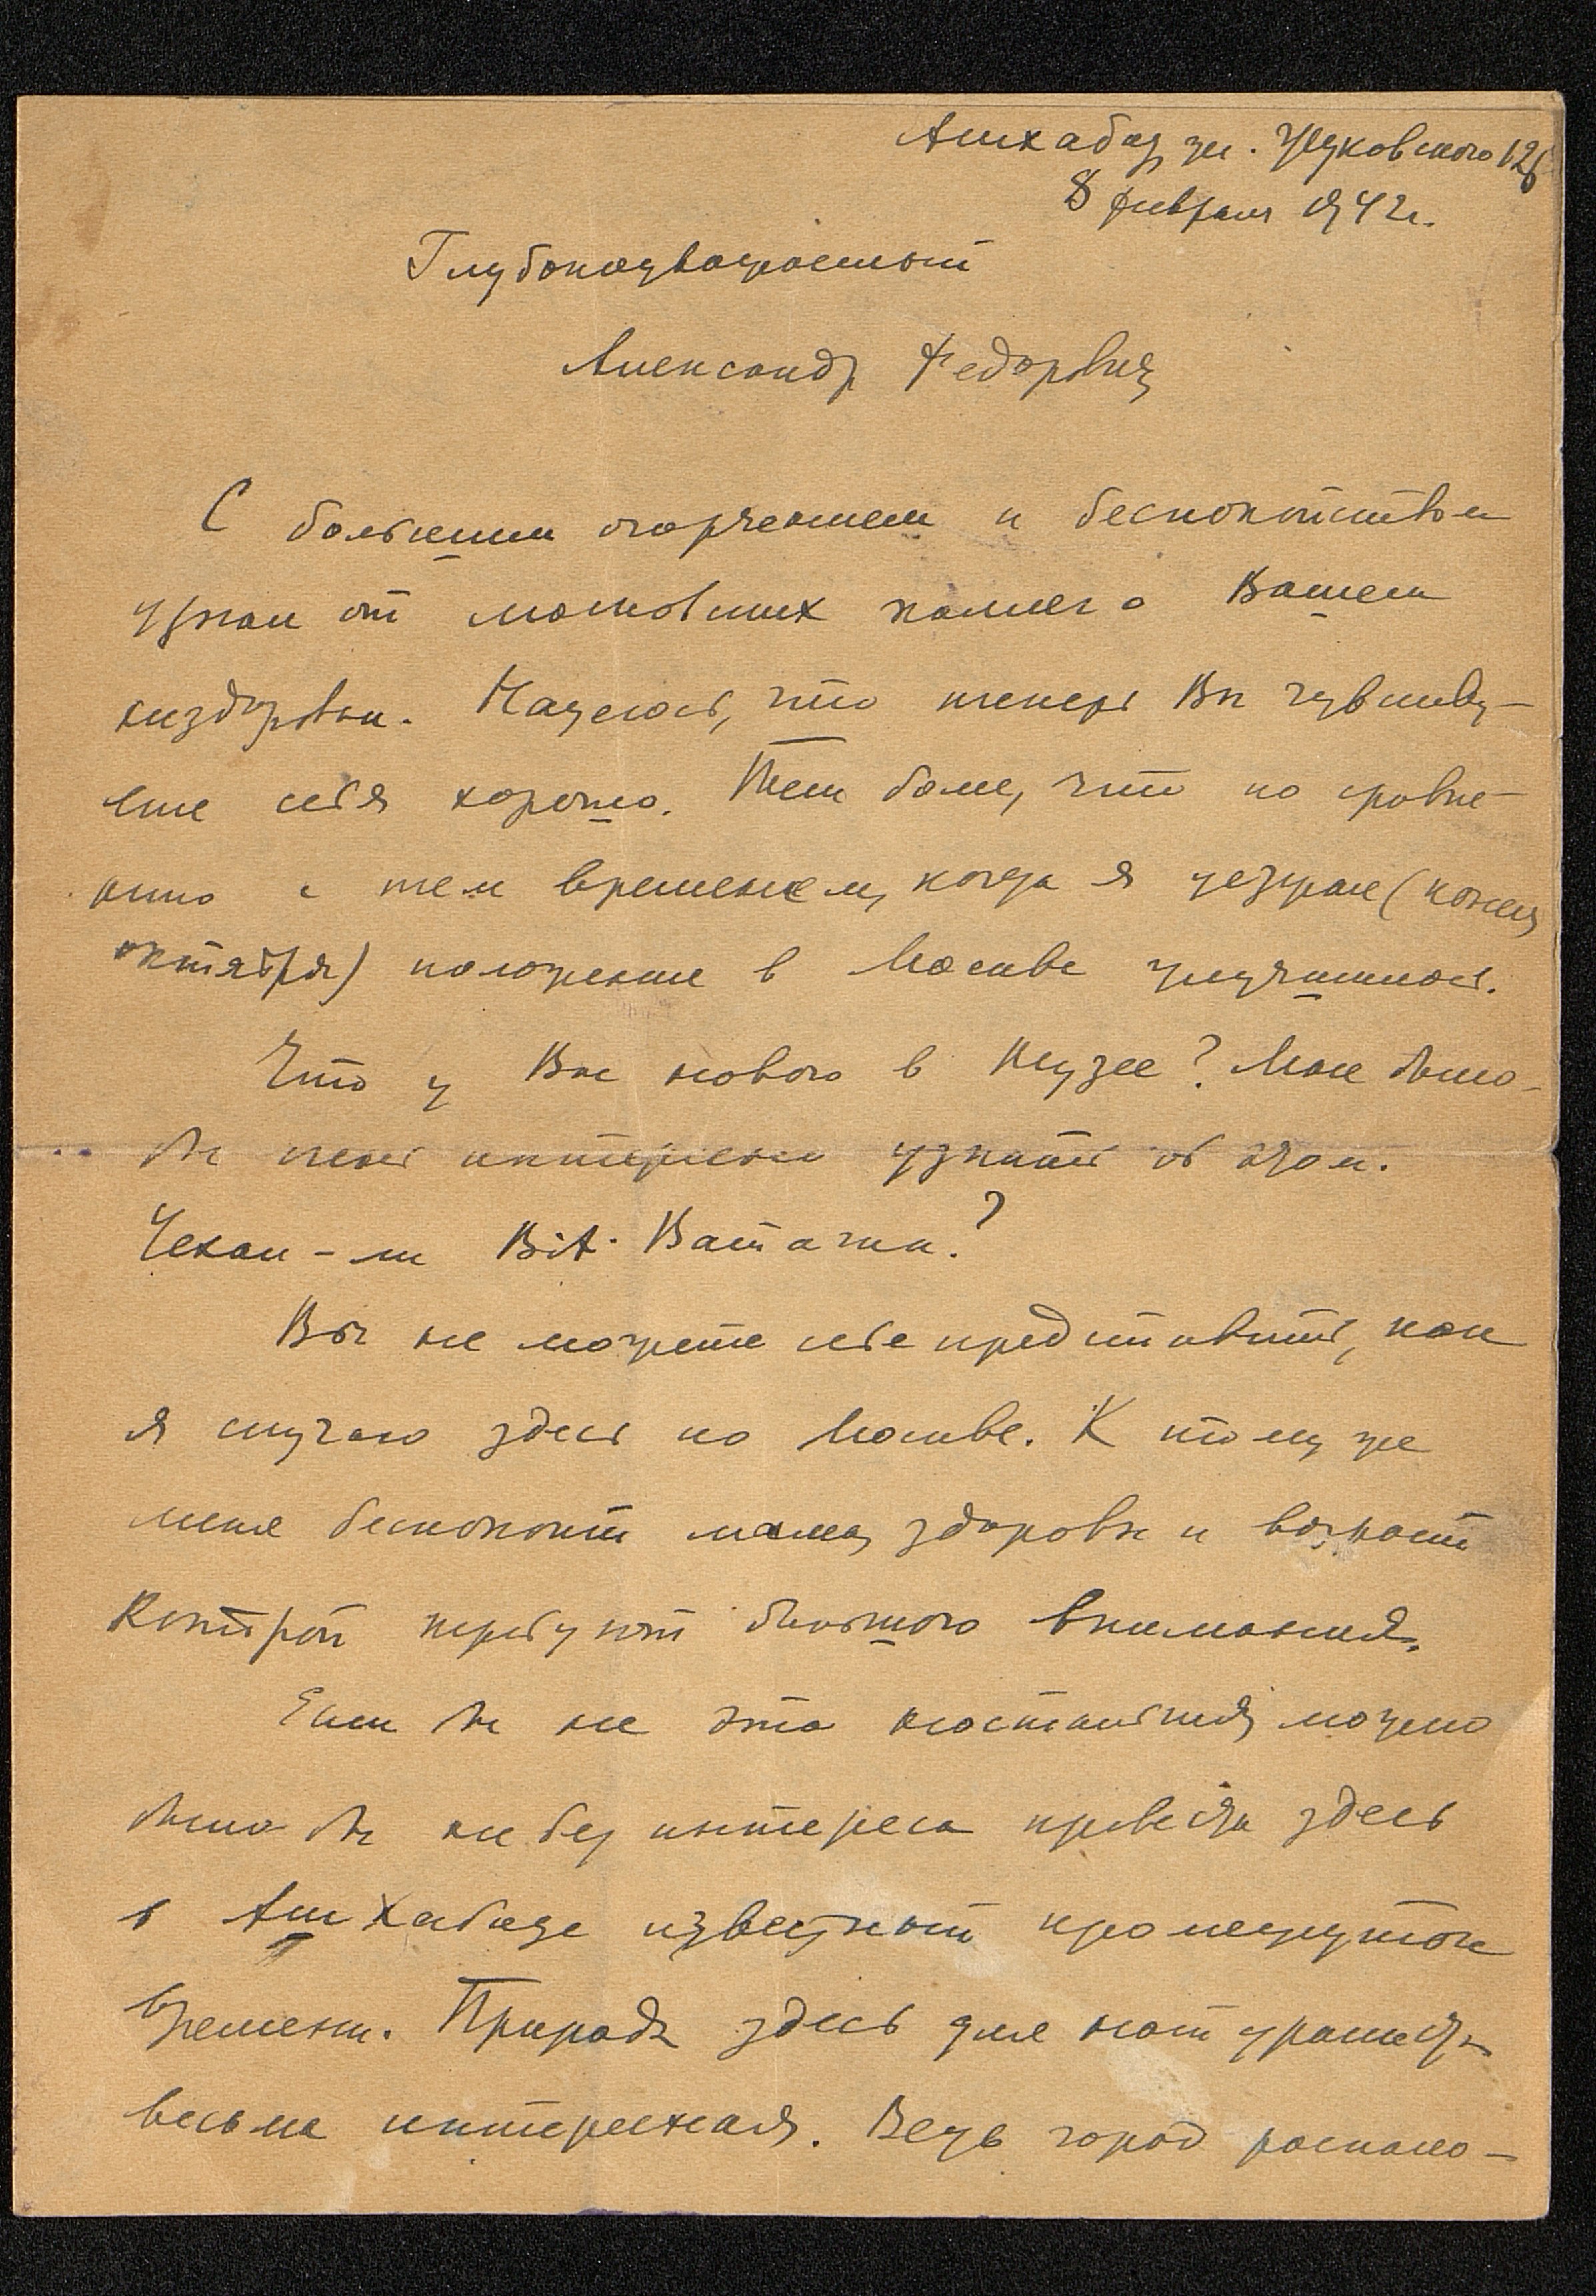 Ашхабад, ул. Жуковского 126
8 февраля 1942 г.
Глубокоуважаемый
Александр Федорович
С большим огорчением и беспокойством
узнал от московских коллег о Вашем
нездоровьи. Надеюсь, что теперь Вы чувству-
ете себя хорошо. Тем более, что по сравне-
нию с тем временем, когда я уезжал (конец
октября) положение в Москве улучшилось.
Что у Вас нового в Музее? Мне было-
бы очень интересно узнать об этом.
Уехал-ли В.А. Ватагин?
Вы не можете себе представить, как
я скучаю здесь по Москве. К тому же
меня беспокоит мама, здоровье и возраст
которой требуют большого внимания.
Если бы не эта ностальгия, можно
было бы не без интереса провести здесь
в Ашхабаде известный промежуток
времени. Природа здесь для натуралиста
весьма интересная. Ведь город располо-